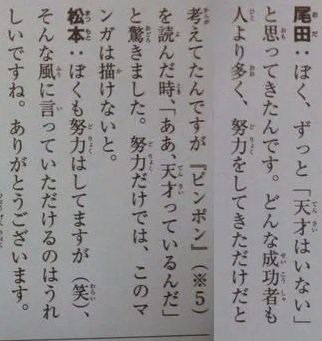 尾田：ぼく、ずっと「天才はいない」
と思ってきたんです。どんな成功者も
人より多く、努力をしてきただけだと
考えてたんですが『ピンポン』（※５）
を読んだ時、「ああ、天才っているんだ」
と驚きました。努力だけでは、このマ
ンガは描けないと。
松本：ぼくも努力はしてますが（笑）、
そんな風に言っていただけるのはうれ
しいですね。ありがとうございます。